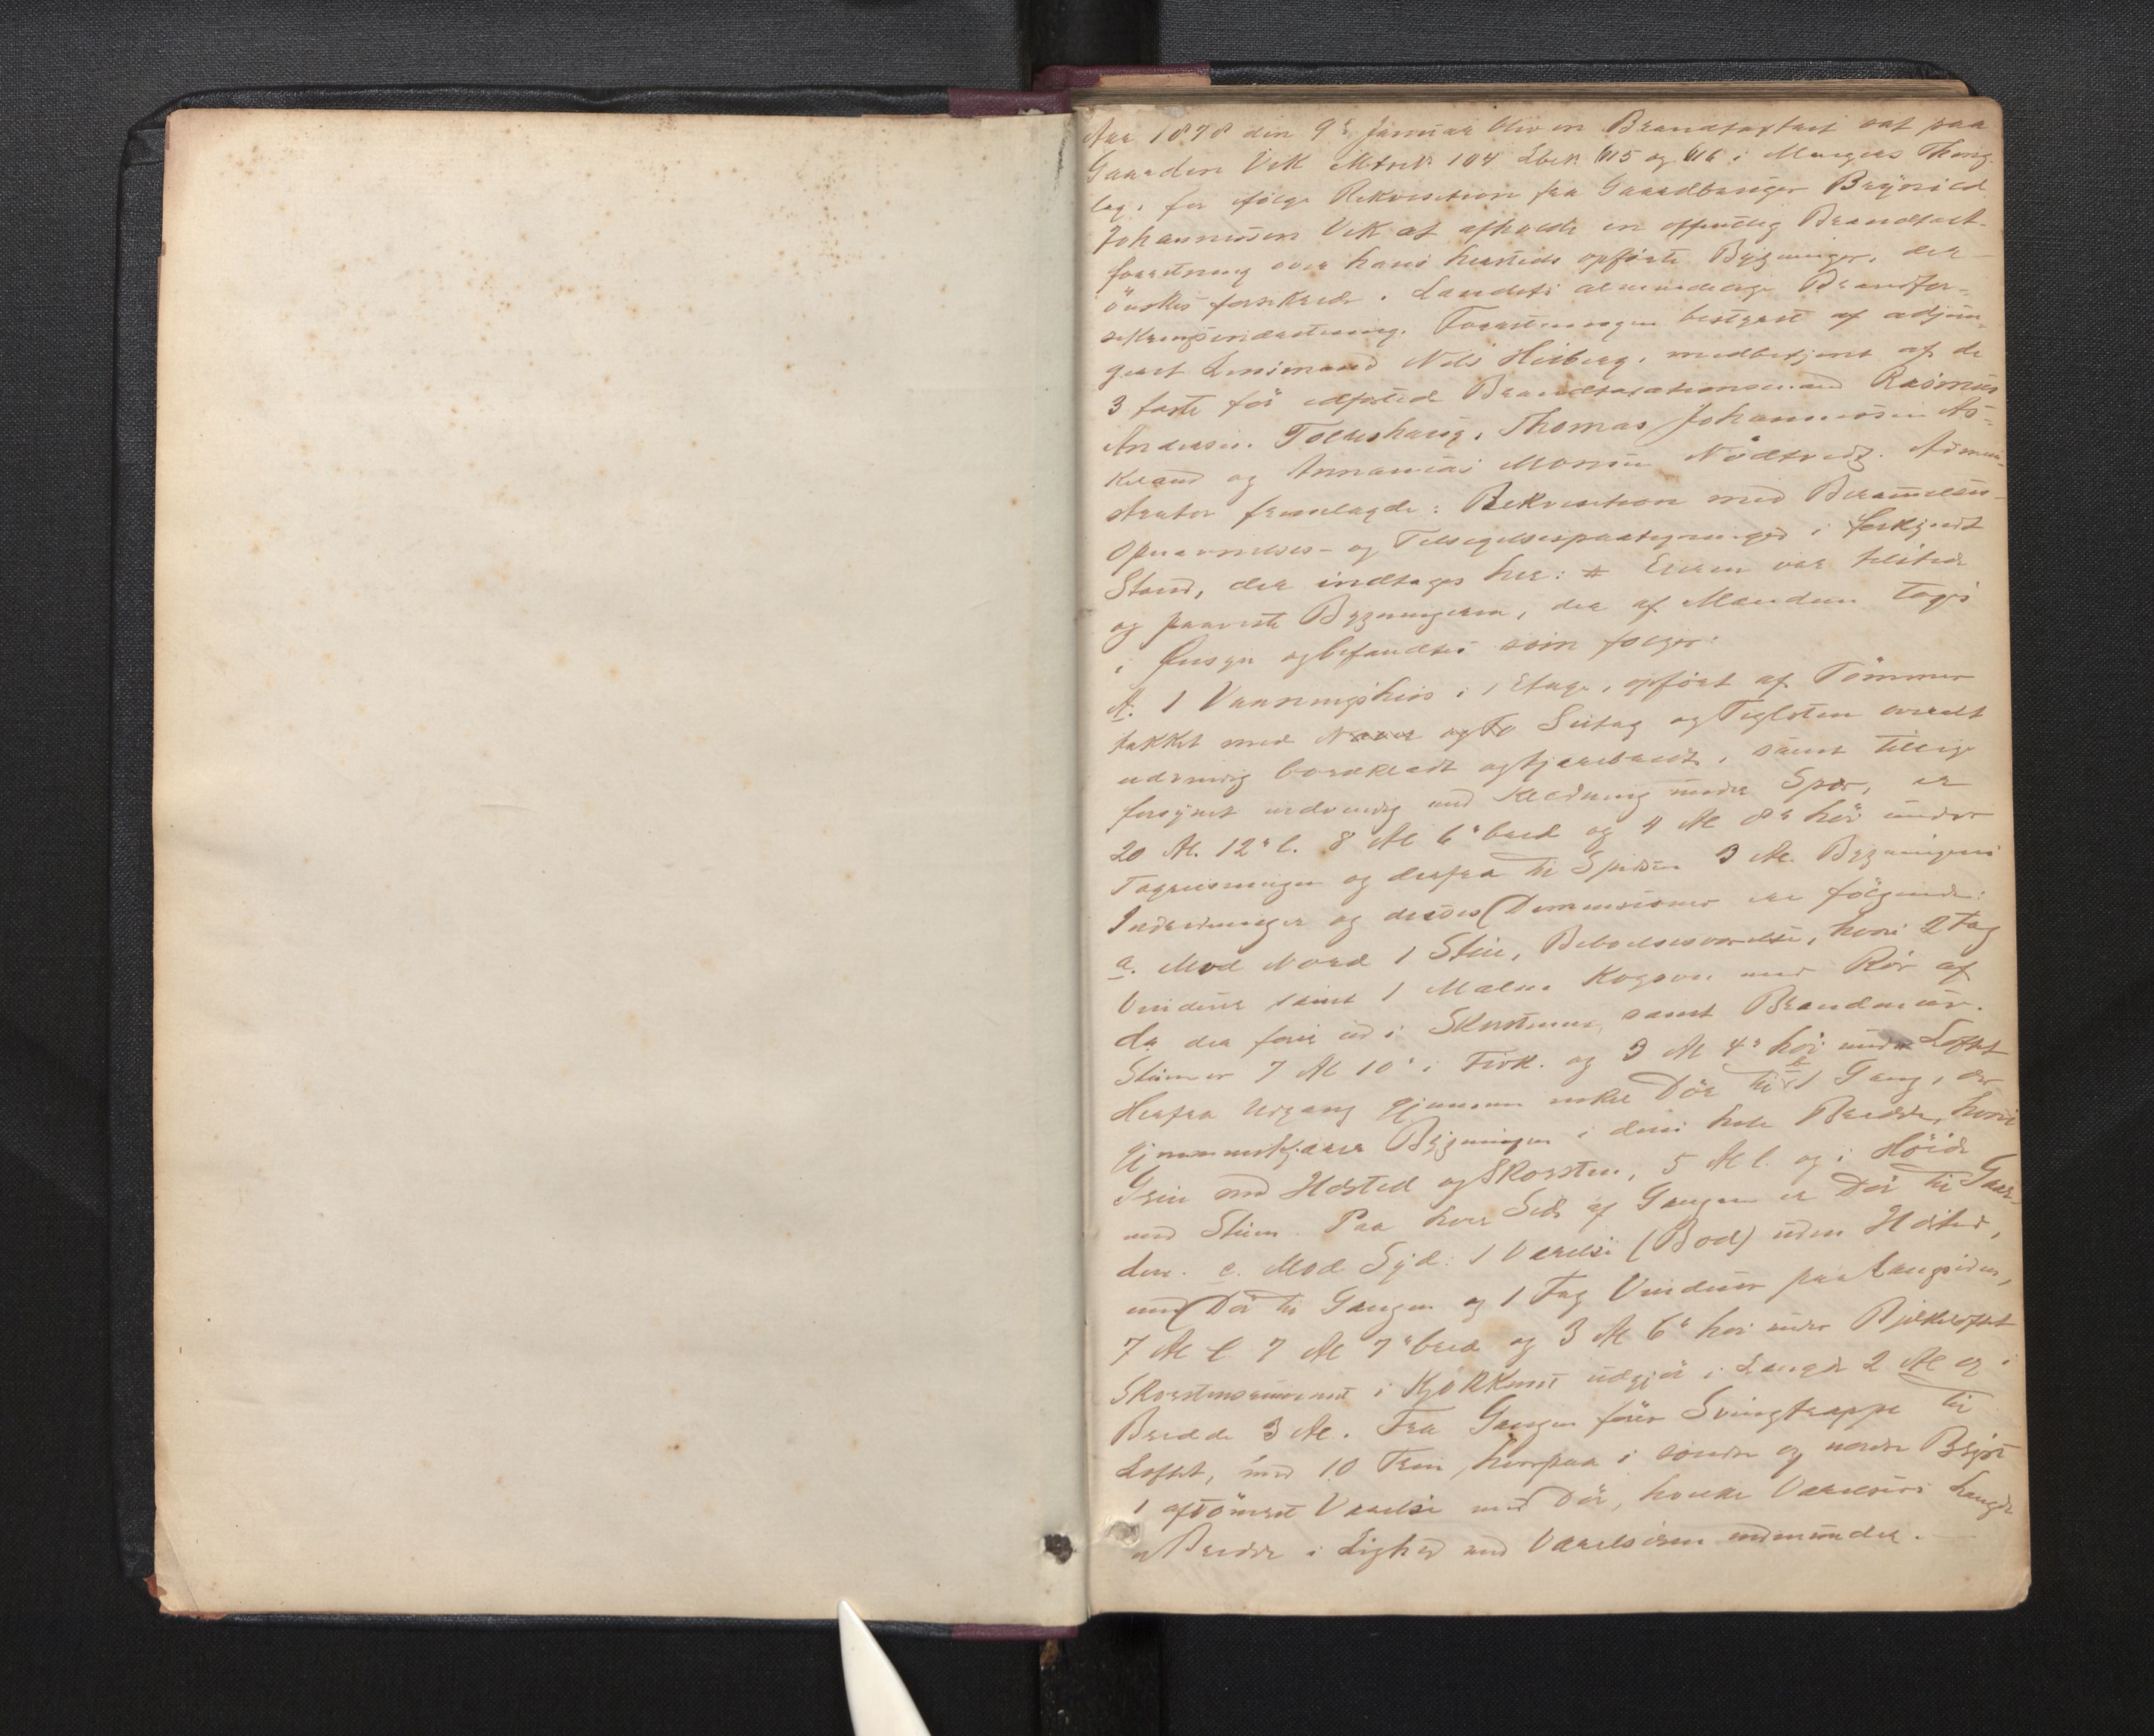 Aar 1878 den 9de Januar blev en Brandtaxtret sat paa
Gaarden Vik Mtrk. 104 Lbek 615 og 616 i Mangers Thing-
lag, for ifølge Rekvisition fra Gaardbruger Brynild
Johannessen Vik at afholde en offentlig Brandtaxt-
forretning over hans hersteds opførte Bygninger, der
önskes forsikrede i Landets almindelige Brandfor-
sikringsindretning. Forretningen bestyret af adjun-
geret Lensmand Nils Hisberg, medbetjent af de
3 faste før edfæstede Brandtaxationsmænd Rasmus
Andersen Toskeshaug, Thomas Johannessen As-
keland og Annanias Monsen Nödtvedt. Admini-
strator fremlagde: Rekvisition med Berammelses-
Opnævnelses- og Tilsigelsespaategninger i forkyndt
Stand, der indtages her: # Eieren var tilstede
og paaviste Bygningerne, der af Mændene toges
i Øiesyn og befandtes som følger:
A. 1 Vaaningshus i 1 Etage, opført af Tömmer
takket med Næver og To Sutag og Teglsten overalt
udvendig bordklædt og tjærebredt, samt tillige
forsynet indvendig med Klædning under Spær, er
20 Al. 12" l. 8 Al 6" bred og 4 Al 8" høi under
Tagreisningen og derfra til Spidsen 3 Al. Bygningens
Indredninger og dessses Dimensioner ere følgende:
a. Mod Nord 1 Stue, Beboelsesværelse, hvori 2 Fag
Vinduer samt 1 Malm Kogeovn med Rör af
do der fører ud i Skorstenen, samt Brandmuur.
Stuen er 7 Al 10" i Firk. og 3 Al 4" høi under Loftet
Herfra Udgang gjennem enkel Dör til b 1 Gang, der
gjennemskjærer Bygningen i dens hele Bredde, hvori
Grue med Ildsted og Skorsten, 5 Al l. og i Höide
med Stuen. Paa hver Side af Gangen er Dör til Gaar-
den. c. Mod Syd: 1 Værelse (Bod) uden Ildsted,
med Dör til Gangen og 1 Fag Vinduer paa Langsiden,
7 Al l. 7 Al 7" bred og 3 Al 6" høi under Bjelkeloftet
Skorstensrummet i Kjökkenet udgjör i Længde 2 Al og i
Bredde 3 Al. Fra Gangen fører Svingtrappe til
Loftet, med 10 Trin, hvorpaa i søndre og nordre Bryst
1 aftömret Værelse med Dör, hvilke Værelsers Længde
og Bredde i Lighed med Værelserne nedenunder.